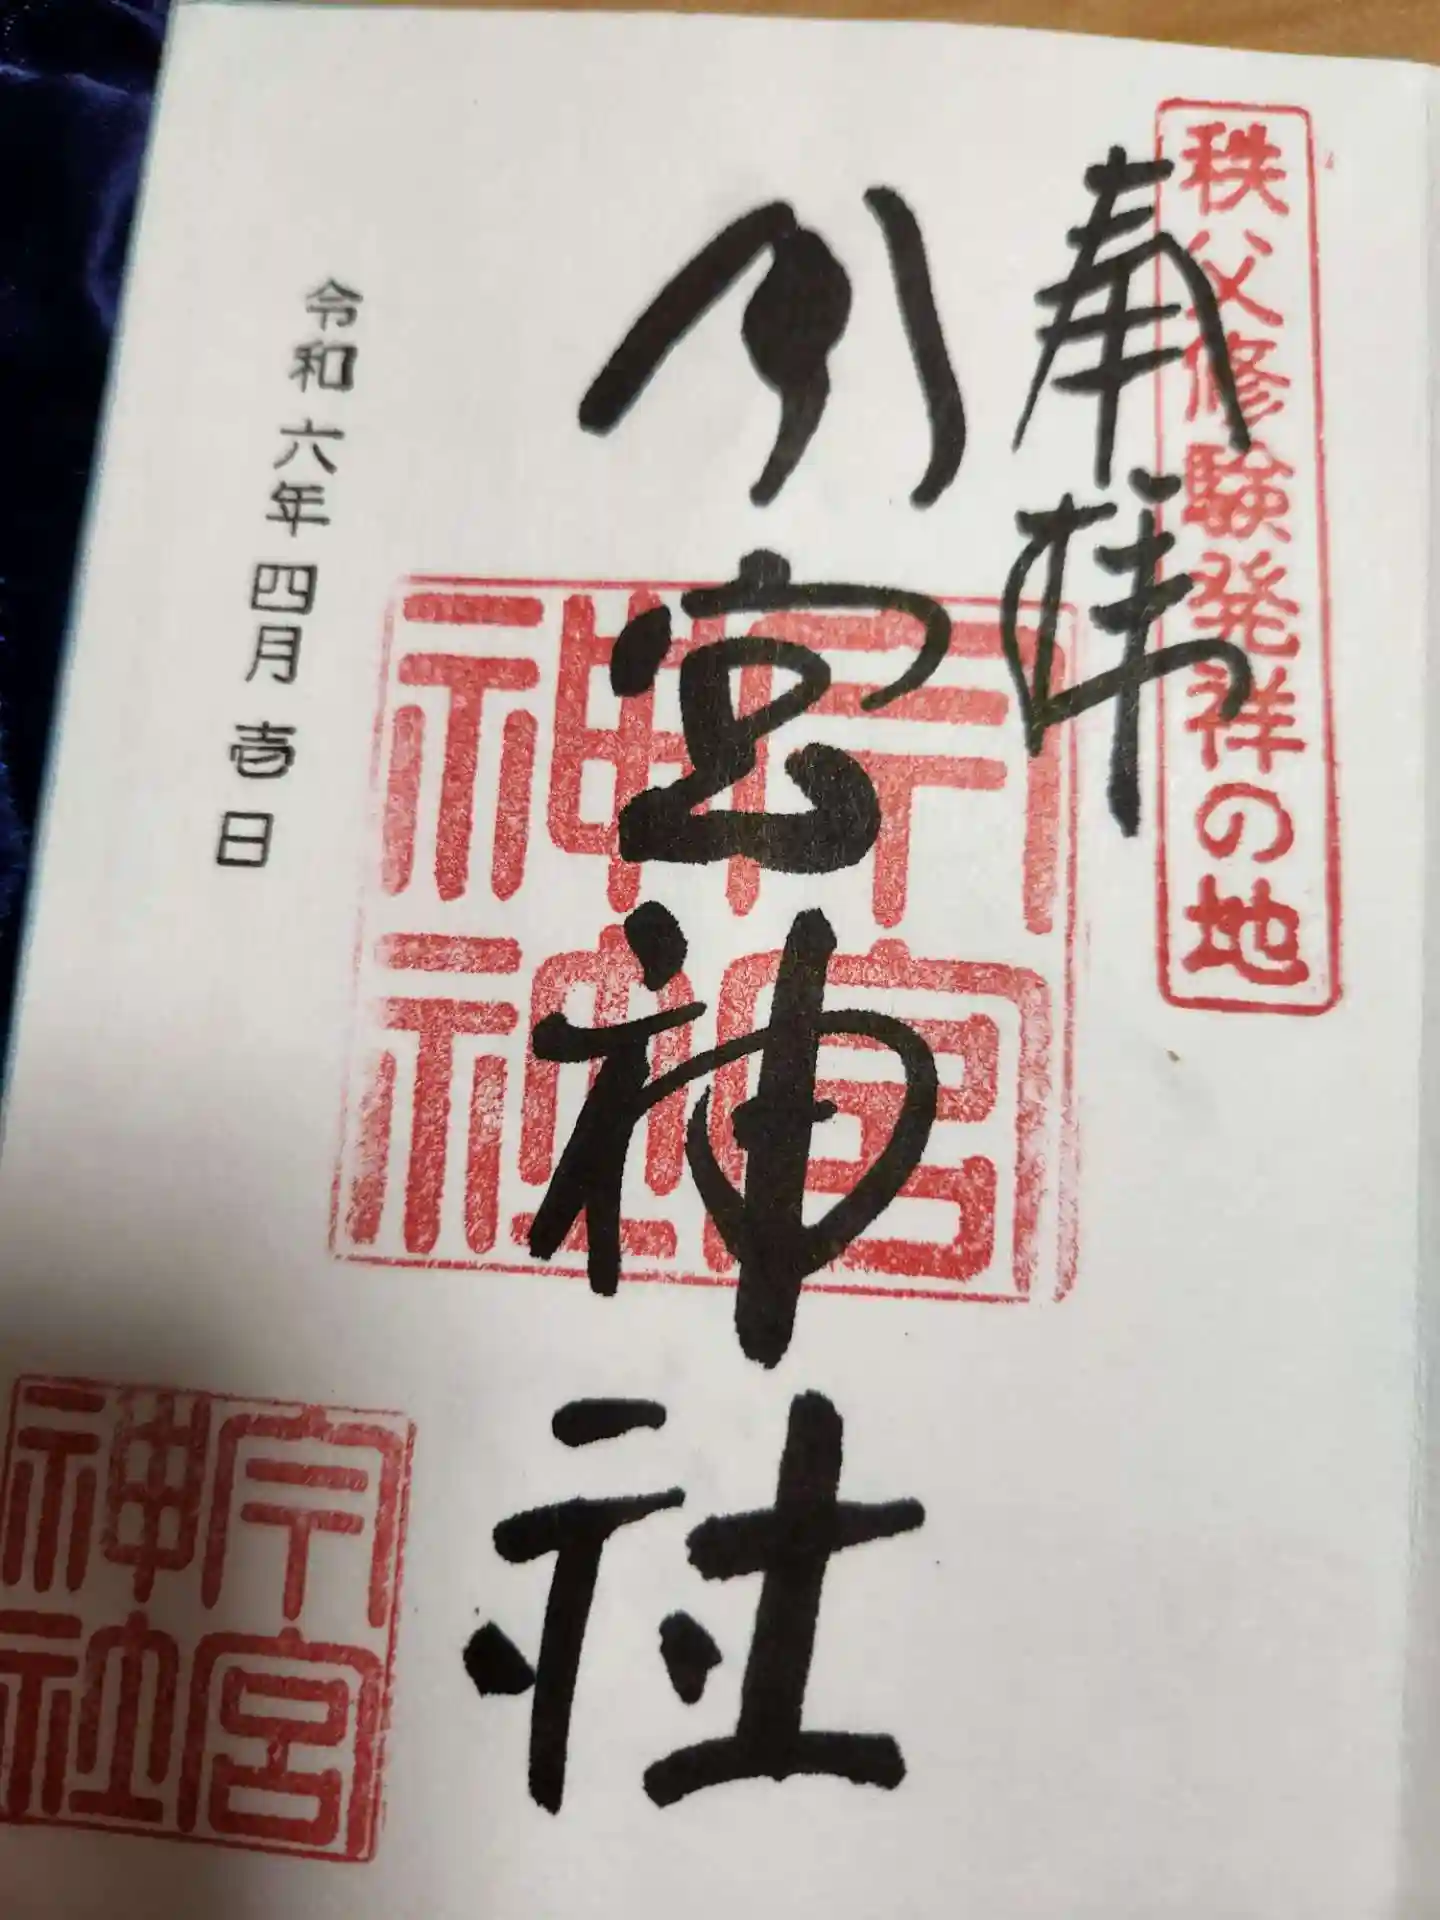 秩父修験発祥の地
奉拝
今宮神社
今宮神社
令和六年四月壱日
今宮神社